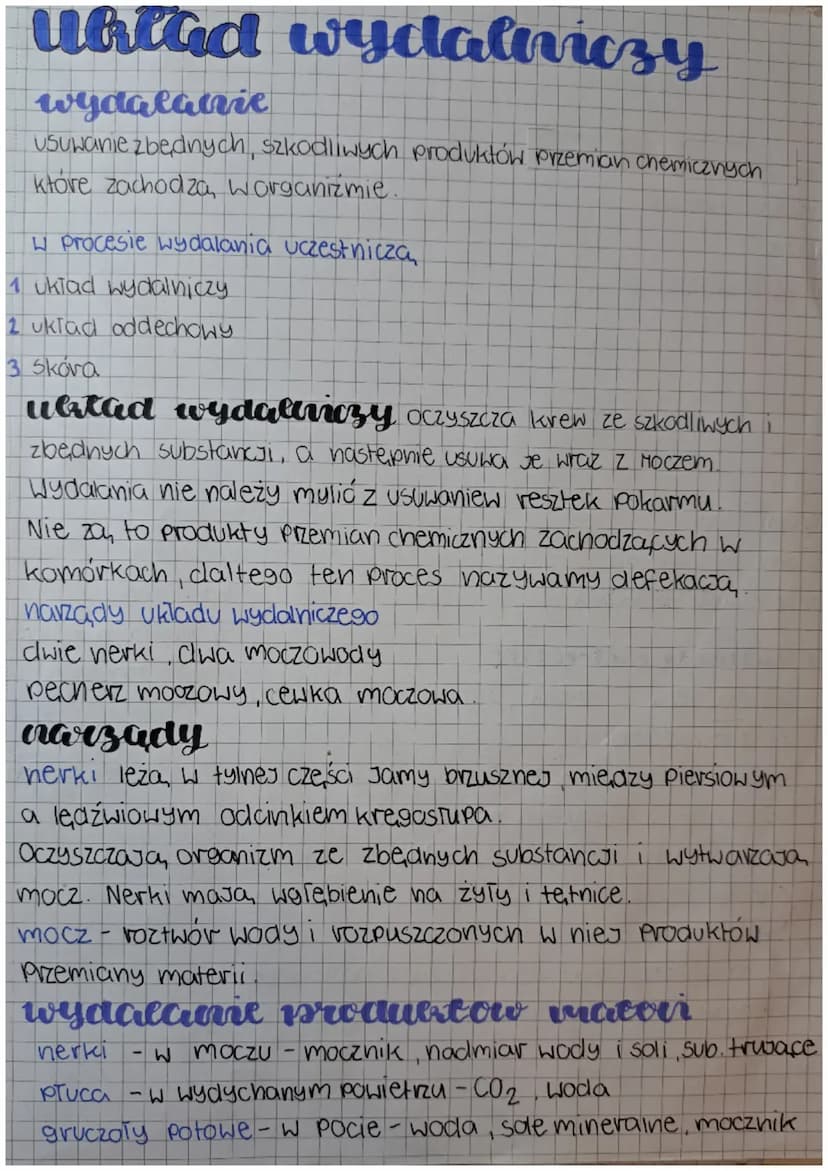 układ wydalniczy
wydalanie
usuwanie zbędnych, szkodliwych produktów przemian chemicznych
które zachodzą w organiźmie.
w procesie wydalania uczestniczą
1 układ wydalniczy
2 układ oddechowy
3 skóra
układ wydalniczy oczyszcza krew ze szkodliwych i
zbędnych substancji, a następnie usuwa je wraz z moczem.
Wydalania nie należy mylić z usuwaniew resztek pokarmu.
Nie zą to produkty przemian chemicznych zachodzących w
komórkach, daltego ten proces nazywamy defekacją.
narządy układu wydalniczego
dwie nerki, dwa moczowody
pęcherz moczowy, cewka moczowa.
narządy
nerki leżą w tylnej części jamy brzusznej, między piersiowym
a lędźwiowym odcinkiem kręgosłupa.
Oczyszczają organizm ze zbędnych substancji i wytwarzają
mocz. Nerki mają wgłębienie na żyły i tętnice.
mocz - roztwór wody i rozpuszczonych w niej produktów
przemiany materii.
wydalanie produktów materi
nerki - w moczu - mocznik, nadmiar wody i soli, sub. trujące
płuca - w wydychanym powietrzu - CO₂, woda
gruczoły potowe - w pocie - woda, sole mineralne, mocznik